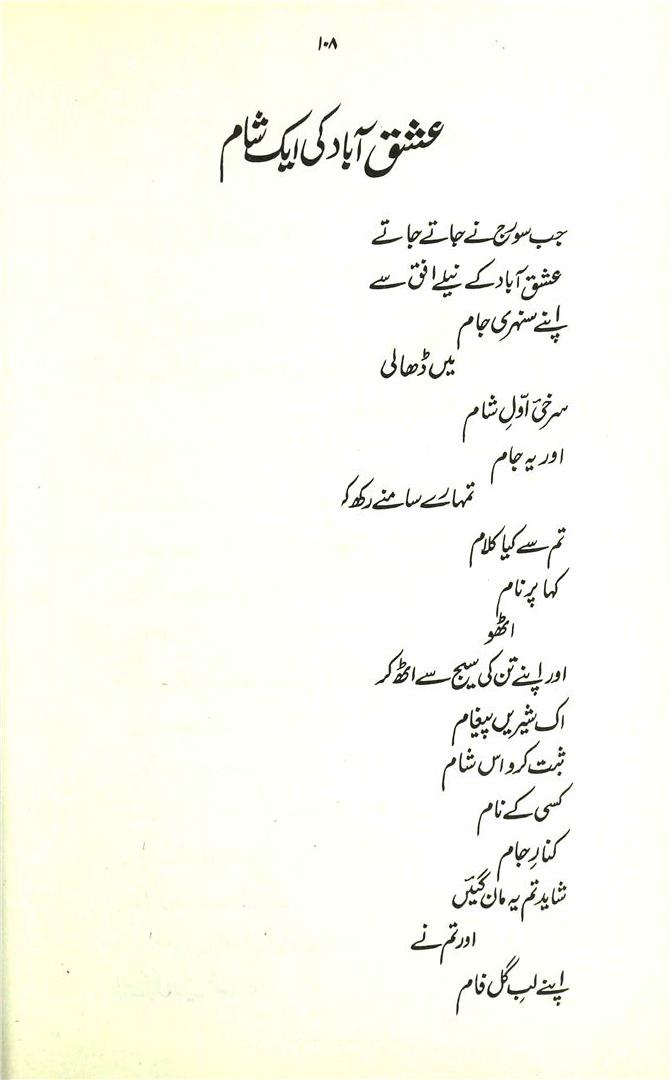 ۱۰۸
عشق آباد کی ایک شام
جب سورج نے جاتے جاتے
عشق آباد کے نیلے افق سے
اپنے سنہری جام
میں ڈھالی
سرخیٔ اوّلِ شام
اور یہ جام
تمہارے سامنے رکھ کر
تم سے کیا کلام
کہا پرنام
اٹھو
اور اپنے تن کی سیج سے اٹھ کر
اک شیریں پیغام
ثبت کرو اس شام
کسی کے نام
کنارِ جام
شاید تم یہ مان گئیں
اور تم نے
اپنے لبِ گل فام